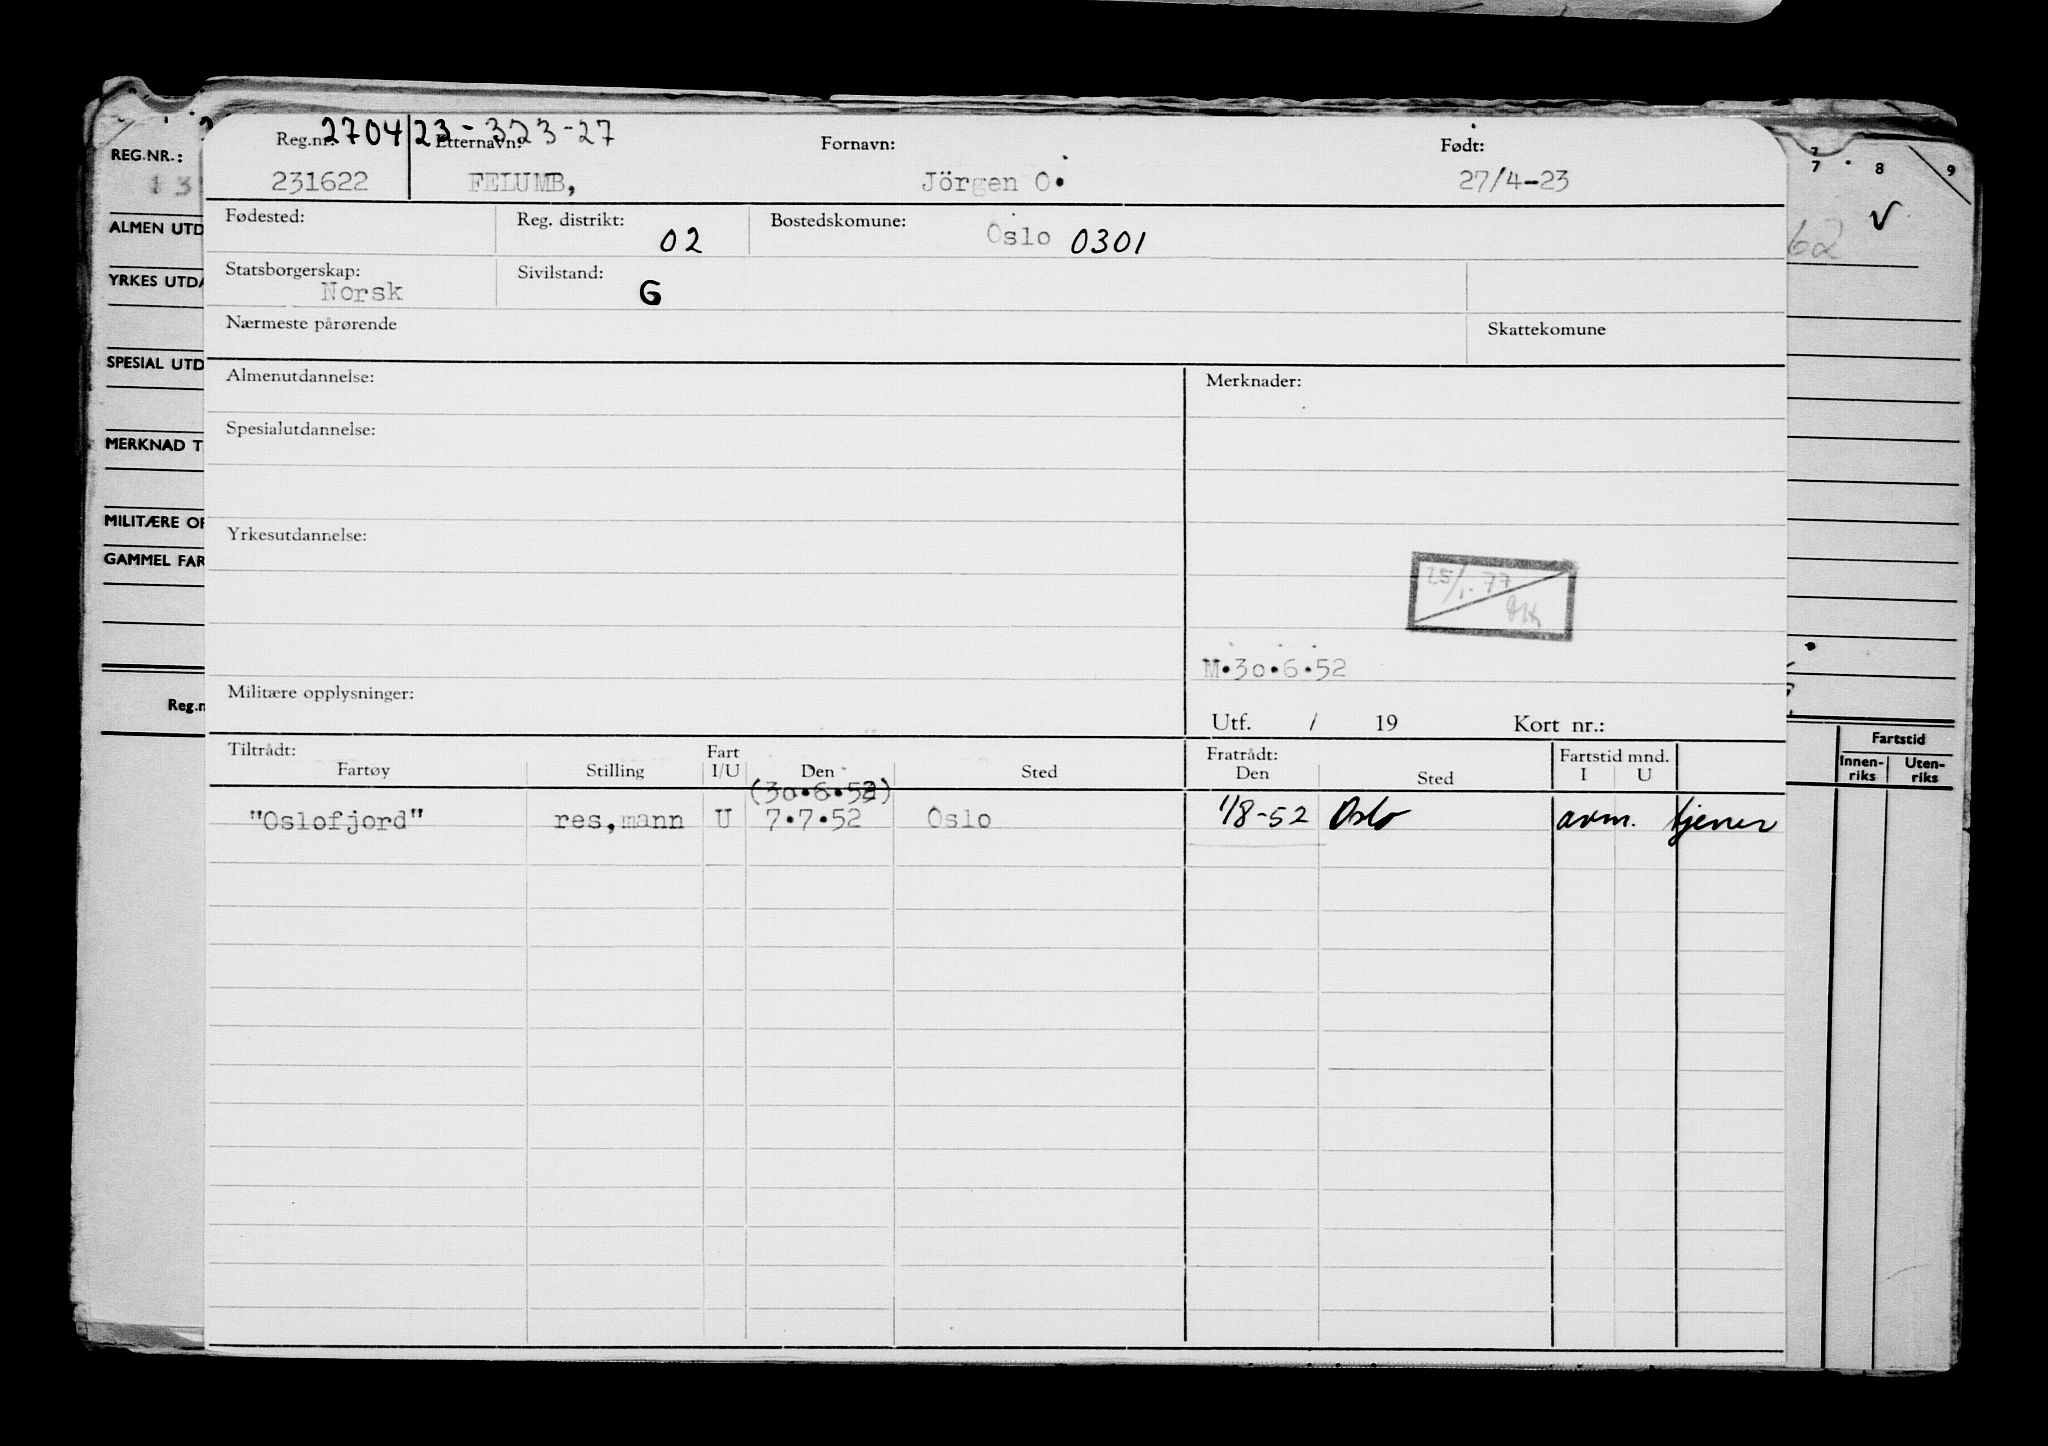 270423-32327
Reg.nr. Etternavn: Fornavn: Født:
231622 FELUMB, Jörgen O. 27/4-23
Fødested: Reg. distrikt: 02 Bostedskomune: Oslo 0301
Statsborgerskap: Norsk Sivilstand: G
Nærmeste pårørende Skattekomune
Almenutdannelse: Merknader:
Spesialutdannelse:
Yrkesutdannelse:
25/1.77
M.30.6.52
Militære opplysninger:
Utf. / 19 Kort nr.:
Tiltrådt: Fart Fratrådt: Fartstid mnd.
Fartøy Stilling I/U Den Sted Den Sted I U
(30.6.52)
"Oslofjord" res,mann U 7.7.52 Oslo 1/8-52 Oslo avm. tjener
REG.NR.:
ALMEN UTD
YRKES UTDA
SPESIAL UTD
MERKNAD T
MILITÆRE OP
GAMMEL FAR
Reg.n
7 8 9
7
62
Fartstid
Innen-riks Uten-riks